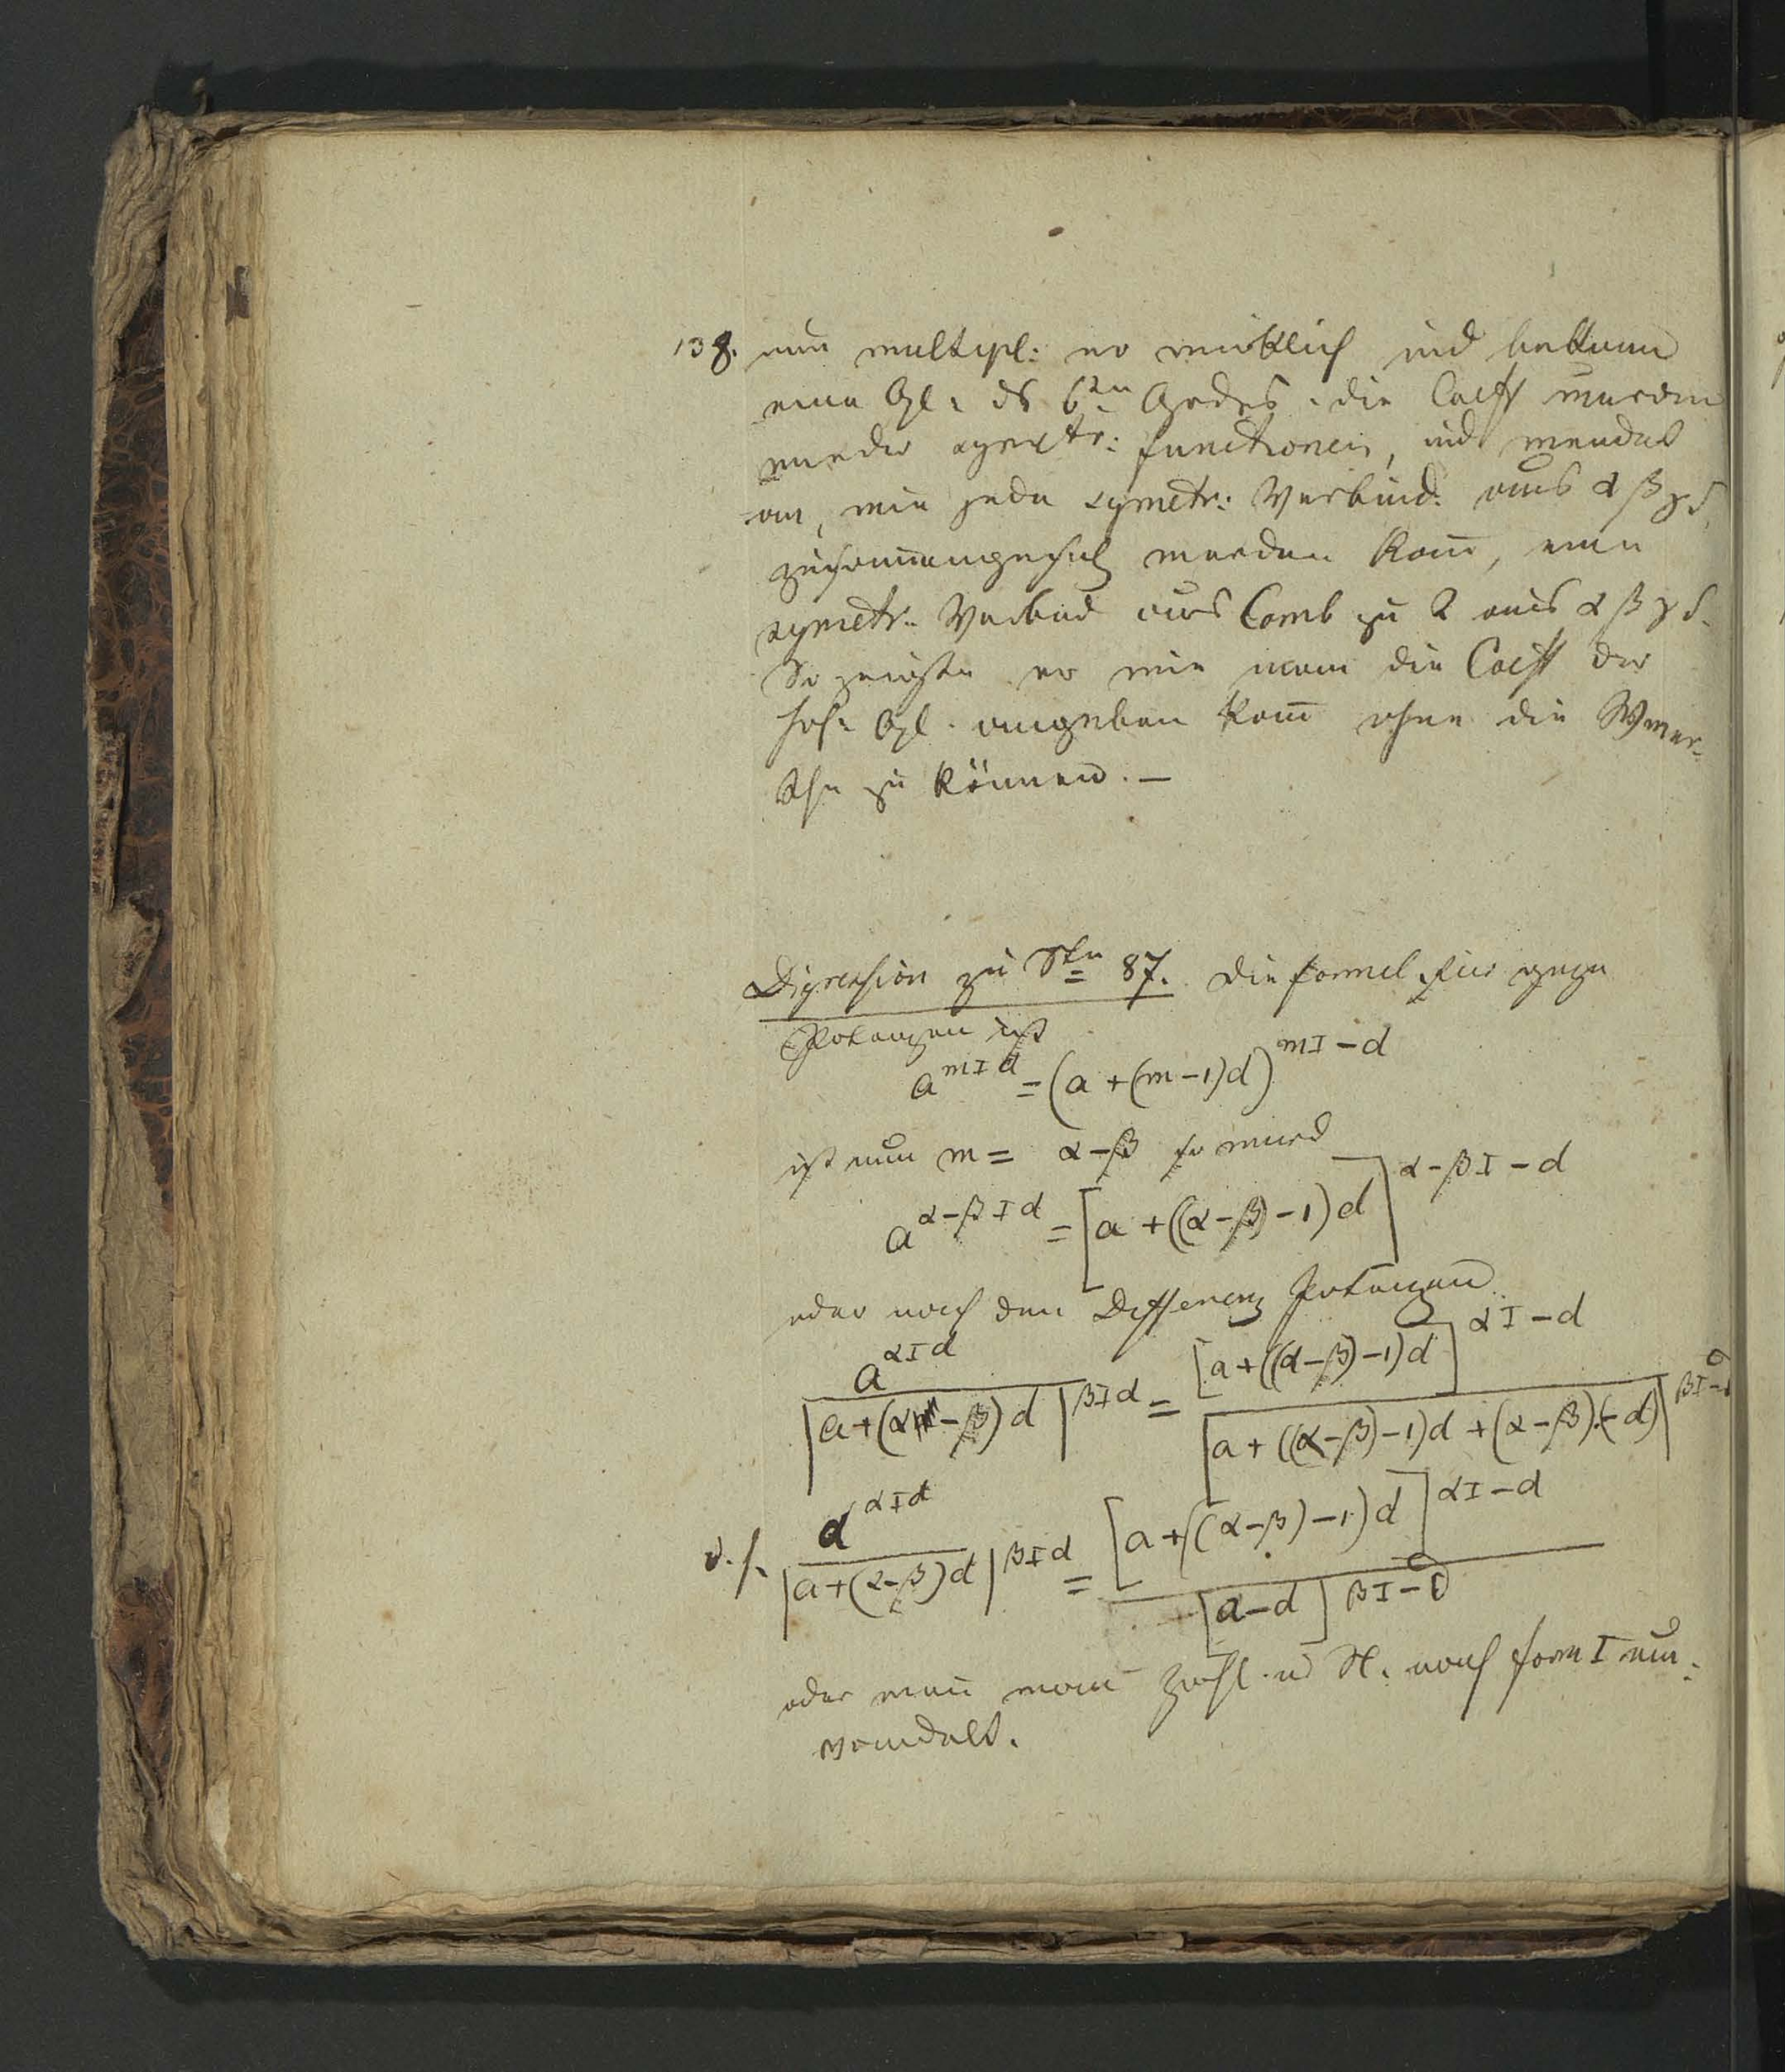 138. nun multipl: er wirklich und bekam
eine Gl: ds 6ten Grades. die Coeff wurden
wieder symetr: functionen, und wendet
an, wie jede symetr: Verbind: aus α β γ δ,
zusam̄engesetz werden kan̄, eine
symetr: Verbind aus Comb zu 2 aus α β γ δ.
So zeigte er wie man die Coeff der
höh: Gl. angeben kan̄ ohne die
zu können. —
Digression zu Stn 87. Die formel für
Potenzen ist
a^{mId} = (a + (m-1)d)^{mI-d}
ist nun m = α-β so wird
a^{α-βId} = [a + ((α-β)-1)d]^{α-βI-d}
oder nach den Differenz Potenzen
a^{αId} / |a+(α-β)d|^{βId} = [a+((α-β)-1)d]^{αI-d} / [a+((α-β)-1)d+(α-β).(-d)]^{βI-d}
d.h. a^{αId} / |a+(α-β)d|^{βId} = [a+((α-β)-1)d]^{αI-d} / [a-d]^{βI-d}
oder wen̄ man Zähl. u N. nach form I um-
wandelt.